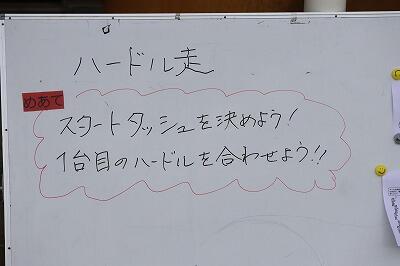 ハードル走
めあて
スタートダッシュを決めよう!
1台目のハードルを合わせよう!!